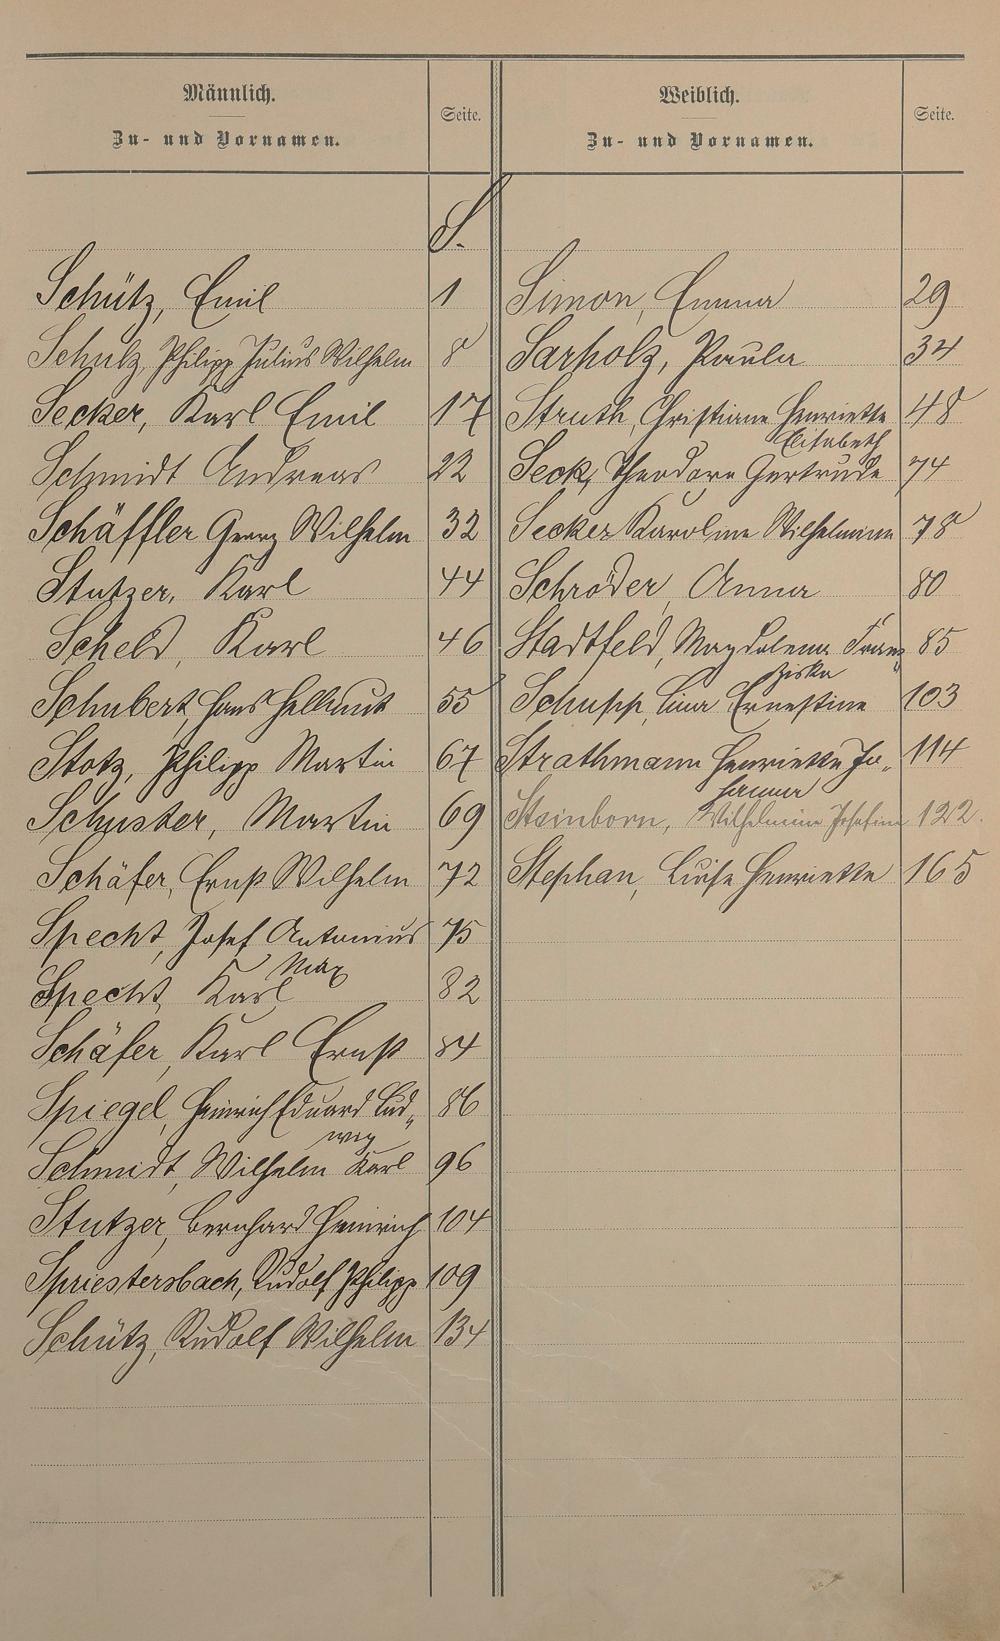 Männlich.
Zu- und Vornamen.
Seite.
Weiblich.
Zu- und Vornamen.
Seite.
S.
Schütz, Emil 1
Schulz, Philipp Julius Wilhelm 8
Secker, Karl Emil 17
Schmidt Andreas 22
Schäffler Georg Wilhelm 32
Stutzer, Karl 44
Scheld, Karl 46
Schubert, Hans Hellmut 55
Stotz, Philipp Martin 67
Schuster, Martin 69
Schäfer, Ernst Wilhelm 72
Specht, Josef Antonius 75
Max
Specht, Karl 82
Schäfer, Karl Ernst 84
Spiegel, Heinrich Eduard Lud„ 86
wig
Schmidt, Wilhelm Karl 96
Stutzer, Bernhard Heinrich 104
Spriestersbach, Rudolf Philipp 109
Schütz, Rudolf Wilhelm 134
Simon, Emma 29
Sarholz, Paula 34
Struth, Christiane Henriette 48
Elisabeth
Seck, Theodore Gertrude 74
Secker Karoline Wilhelmine 78
Schröder, Anna 80
Stadtfeld, Magdalena Fran„ 85
ziska
Schupp, Lina Ernestine 103
Strathmann Henriette Jo„ 114
hanna
Steinborn, Wilhelmine Josefine 122.
Stephan, Luise Henriette 165